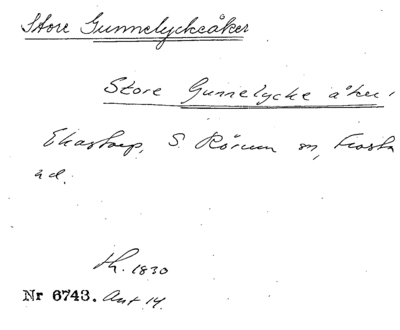 Store Gunnelyckeåker
Store Gunnelycke åker,
Ekastorp, S. Rörum sn, Frosta
hd.
th. 1830
Nr 6743. Akt 14.